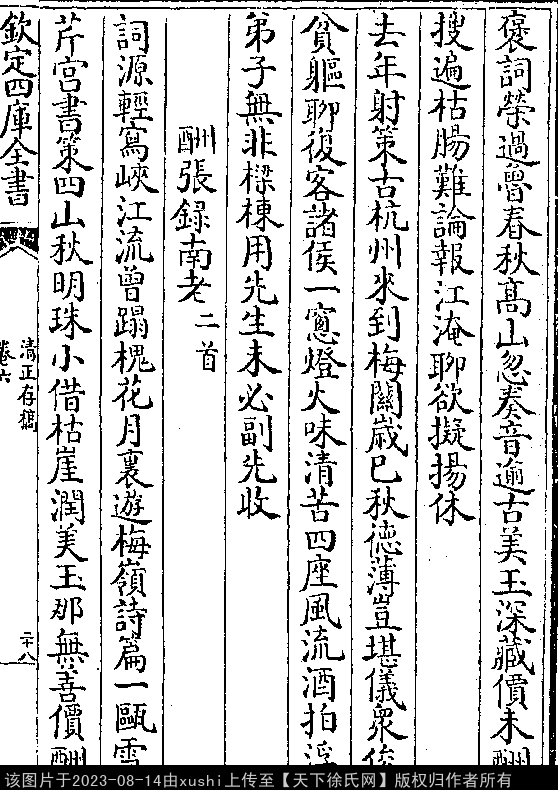 褒詞榮過魯春秋高山忽奏音逾古美玉深藏價未酬
搜遍枯腸難論報江淹聊欲擬揚休
去年射策古杭州來到梅關嵗已秋德薄豈堪儀衆俊
貧軀聊復客諸侯一窻燈火味清苦四座風流酒拍浮
弟子無非樑棟用先生未必副先收
酬張録南老二首
詞源輕寫峽江流曾蹋槐花月裏遊梅嶺詩篇一甌雪
芹宮書策四山秋明珠小借枯崖潤美玉那無善價酬
欽定四庫全書
清正存稿
卷六
二十八
该图片于2023-08-14由xushi上传至【天下徐氏网】版权归作者所有